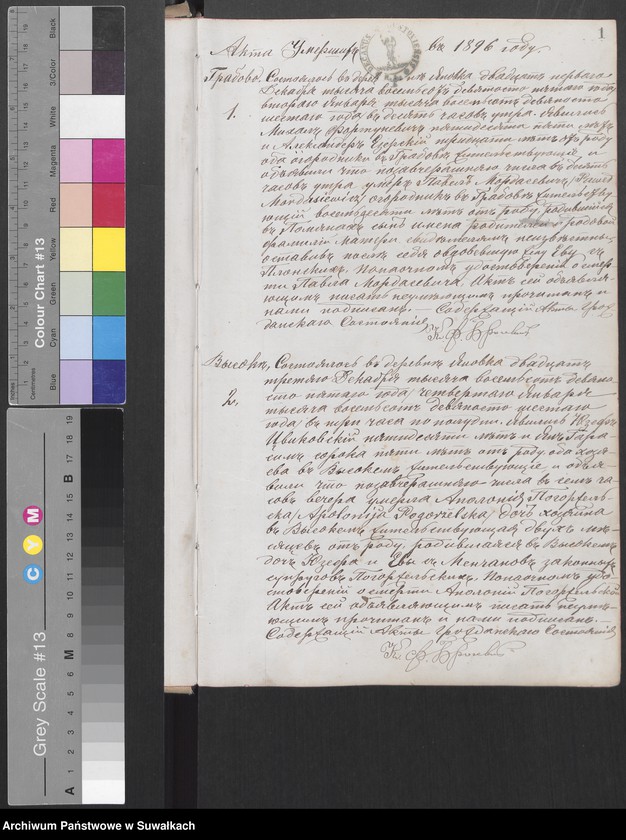 Акта Умершихъ въ 1896 году.
1
Грабово. Состоялось въ двадцать перваго
1. Декабря тысяча восемьсотъ девяносто пятаго года
втораго Января тысяча восемьсотъ девяносто
шестаго года въ десять часовъ утра. Явились
Михаилъ пятидесяти пяти лѣтъ
и Александръ тридцати лѣтъ отъ роду
оба огородники въ Грабовѣ жительствующіе, и
объявили что позавчерашняго числа въ девять
часовъ утра умеръ Павелъ Мордасевичъ
Mordasiewicz, огородникъ въ Грабовѣ жительству
ющій восемьдесяти лѣтъ отъ роду родившійся
въ сынъ имена родителей и родовой
фамиліи Матери свидѣтелямъ неизвѣстны,
оставивъ послѣ себя овдовѣвшую жену Еву съ
По воочномъ удостовѣреніи о смер
ти Павла Мордасевича Актъ сей объявля-
ющимъ писать неумѣющимъ прочитанъ и
нами подписанъ. — Содержащій Акты Граж
данскаго Состоянія
Высоке, Состоялось въ деревнѣ Яновка двадцать
2. третьяго Декабря тысяча восемьсотъ девяно
сто пятаго года / четвертаго Января
тысяча восемьсотъ девяносто шестаго
года въ три часа по полудни. Явились Юзефъ
пятидесяти лѣтъ и Янъ
сорока пяти лѣтъ отъ роду оба хозя
ева въ Высокемъ жительствующіе, и объя-
вили что позавчерашняго числа въ семь ча
совъ вечера умерла Аполонія Погоржель
ска /Apolonija Pogorzelska/ дочь хозяина
въ Высокемъ жительствующая двухъ мѣ-
сяцевъ отъ роду, родившаяся въ Высокемъ
дочь Юзефа и Евы съ законныхъ
супруговъ Погоржельскихъ. По воочномъ удо
стовѣреніи о смерти Аполоніи Погоржельской
Актъ сей объявляющимъ писать неумѣ-
ющимъ прочитанъ и нами подписанъ.
Содержащій Акты Гражданскаго Состоянія
Colour Chart #13
Blue Cyan Green Yellow Red Magenta White 3/Color Black
Inches
Centimetres
Grey Scale #13
C Y M
A 1 2 3 4 5 6 M 8 9 10 11 12 13 14 15 B 17 18 19
Archiwum Państwowe w Suwałkach